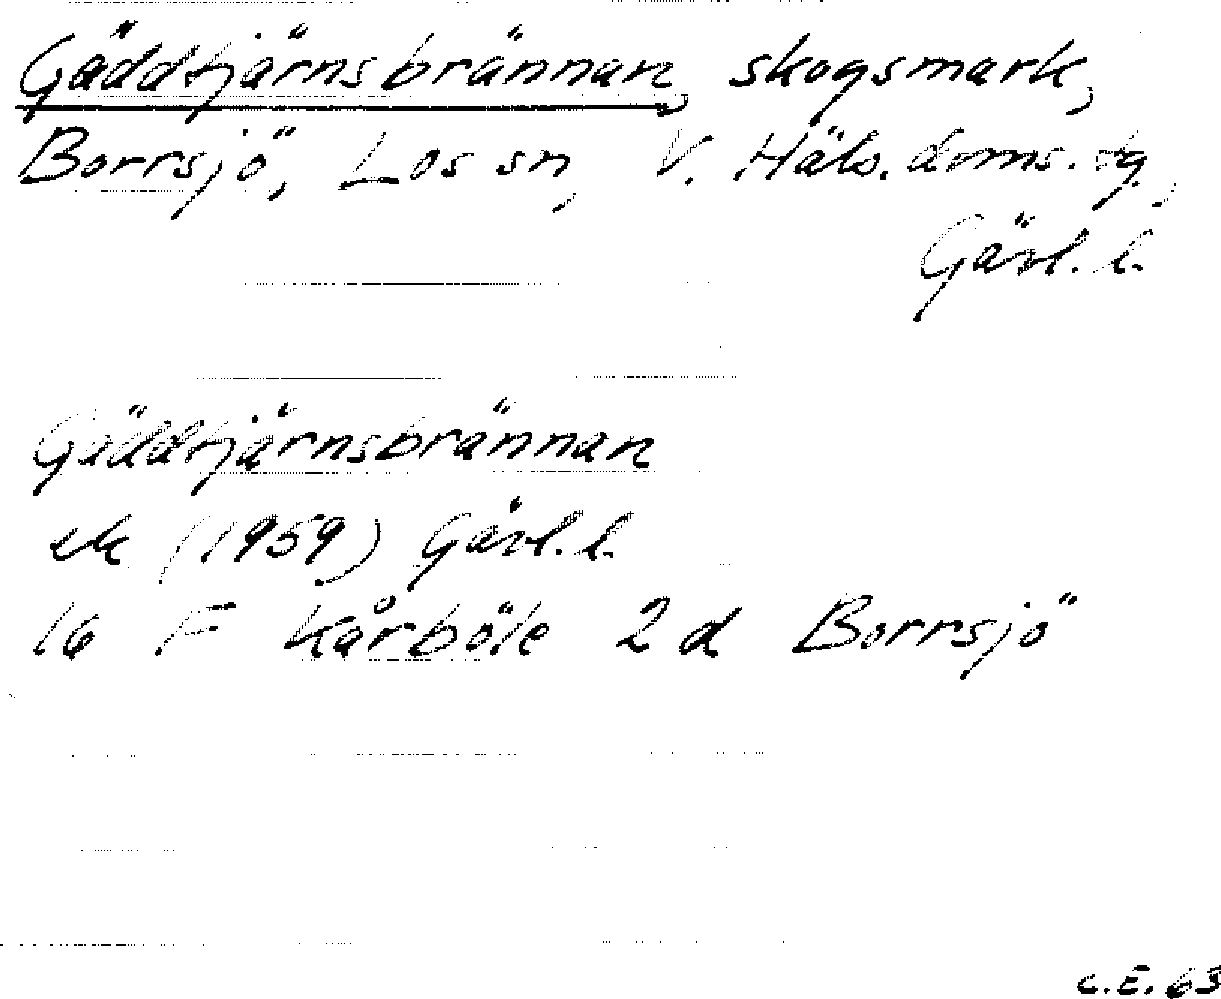 Gäddtjärnsbrännan, skogsmark,
Borrsjö, Los sn, V. Häls. doms. tg,
Gävl. l.
Gäddtjärnsbrännan
ek (1959) Gävl. l.
16 F Kårböle 2 d Borrsjö
C.E. 63